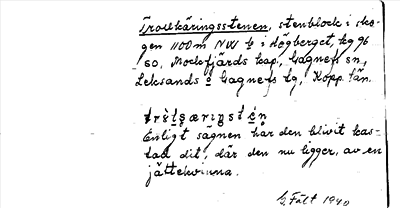 Trollkäringsstenen, stenblock i sko-
gen 1100 m NW b i Högberget, kg 96
60, Mockfjärds kap., Gagnefs sn,
Leksands o Gagnefs tg, Kopp. län.
Enligt sägnen har den blivit kas-
tad dit, där den nu ligger, av en
jättekvinna.
G. Fält 1940